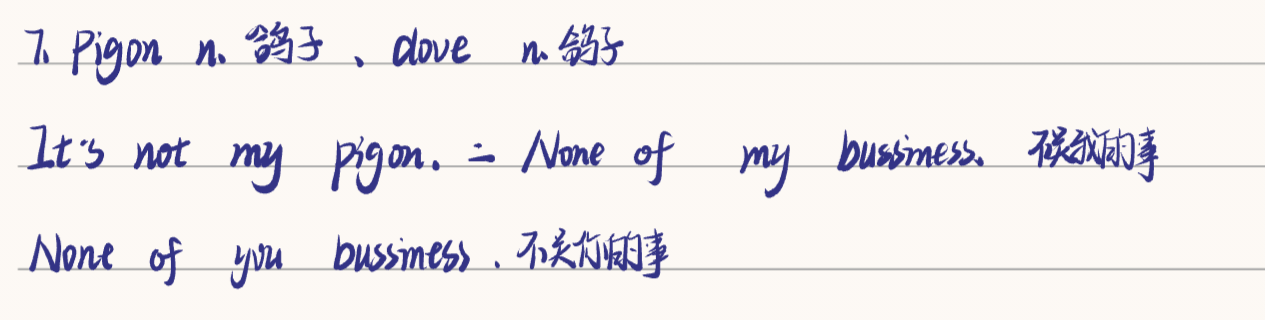 7. Pigon n. 鸽子、dove n. 鸽子
It's not my pigon. = None of my bussiness. 不关我的事
None of you bussiness. 不关你的事